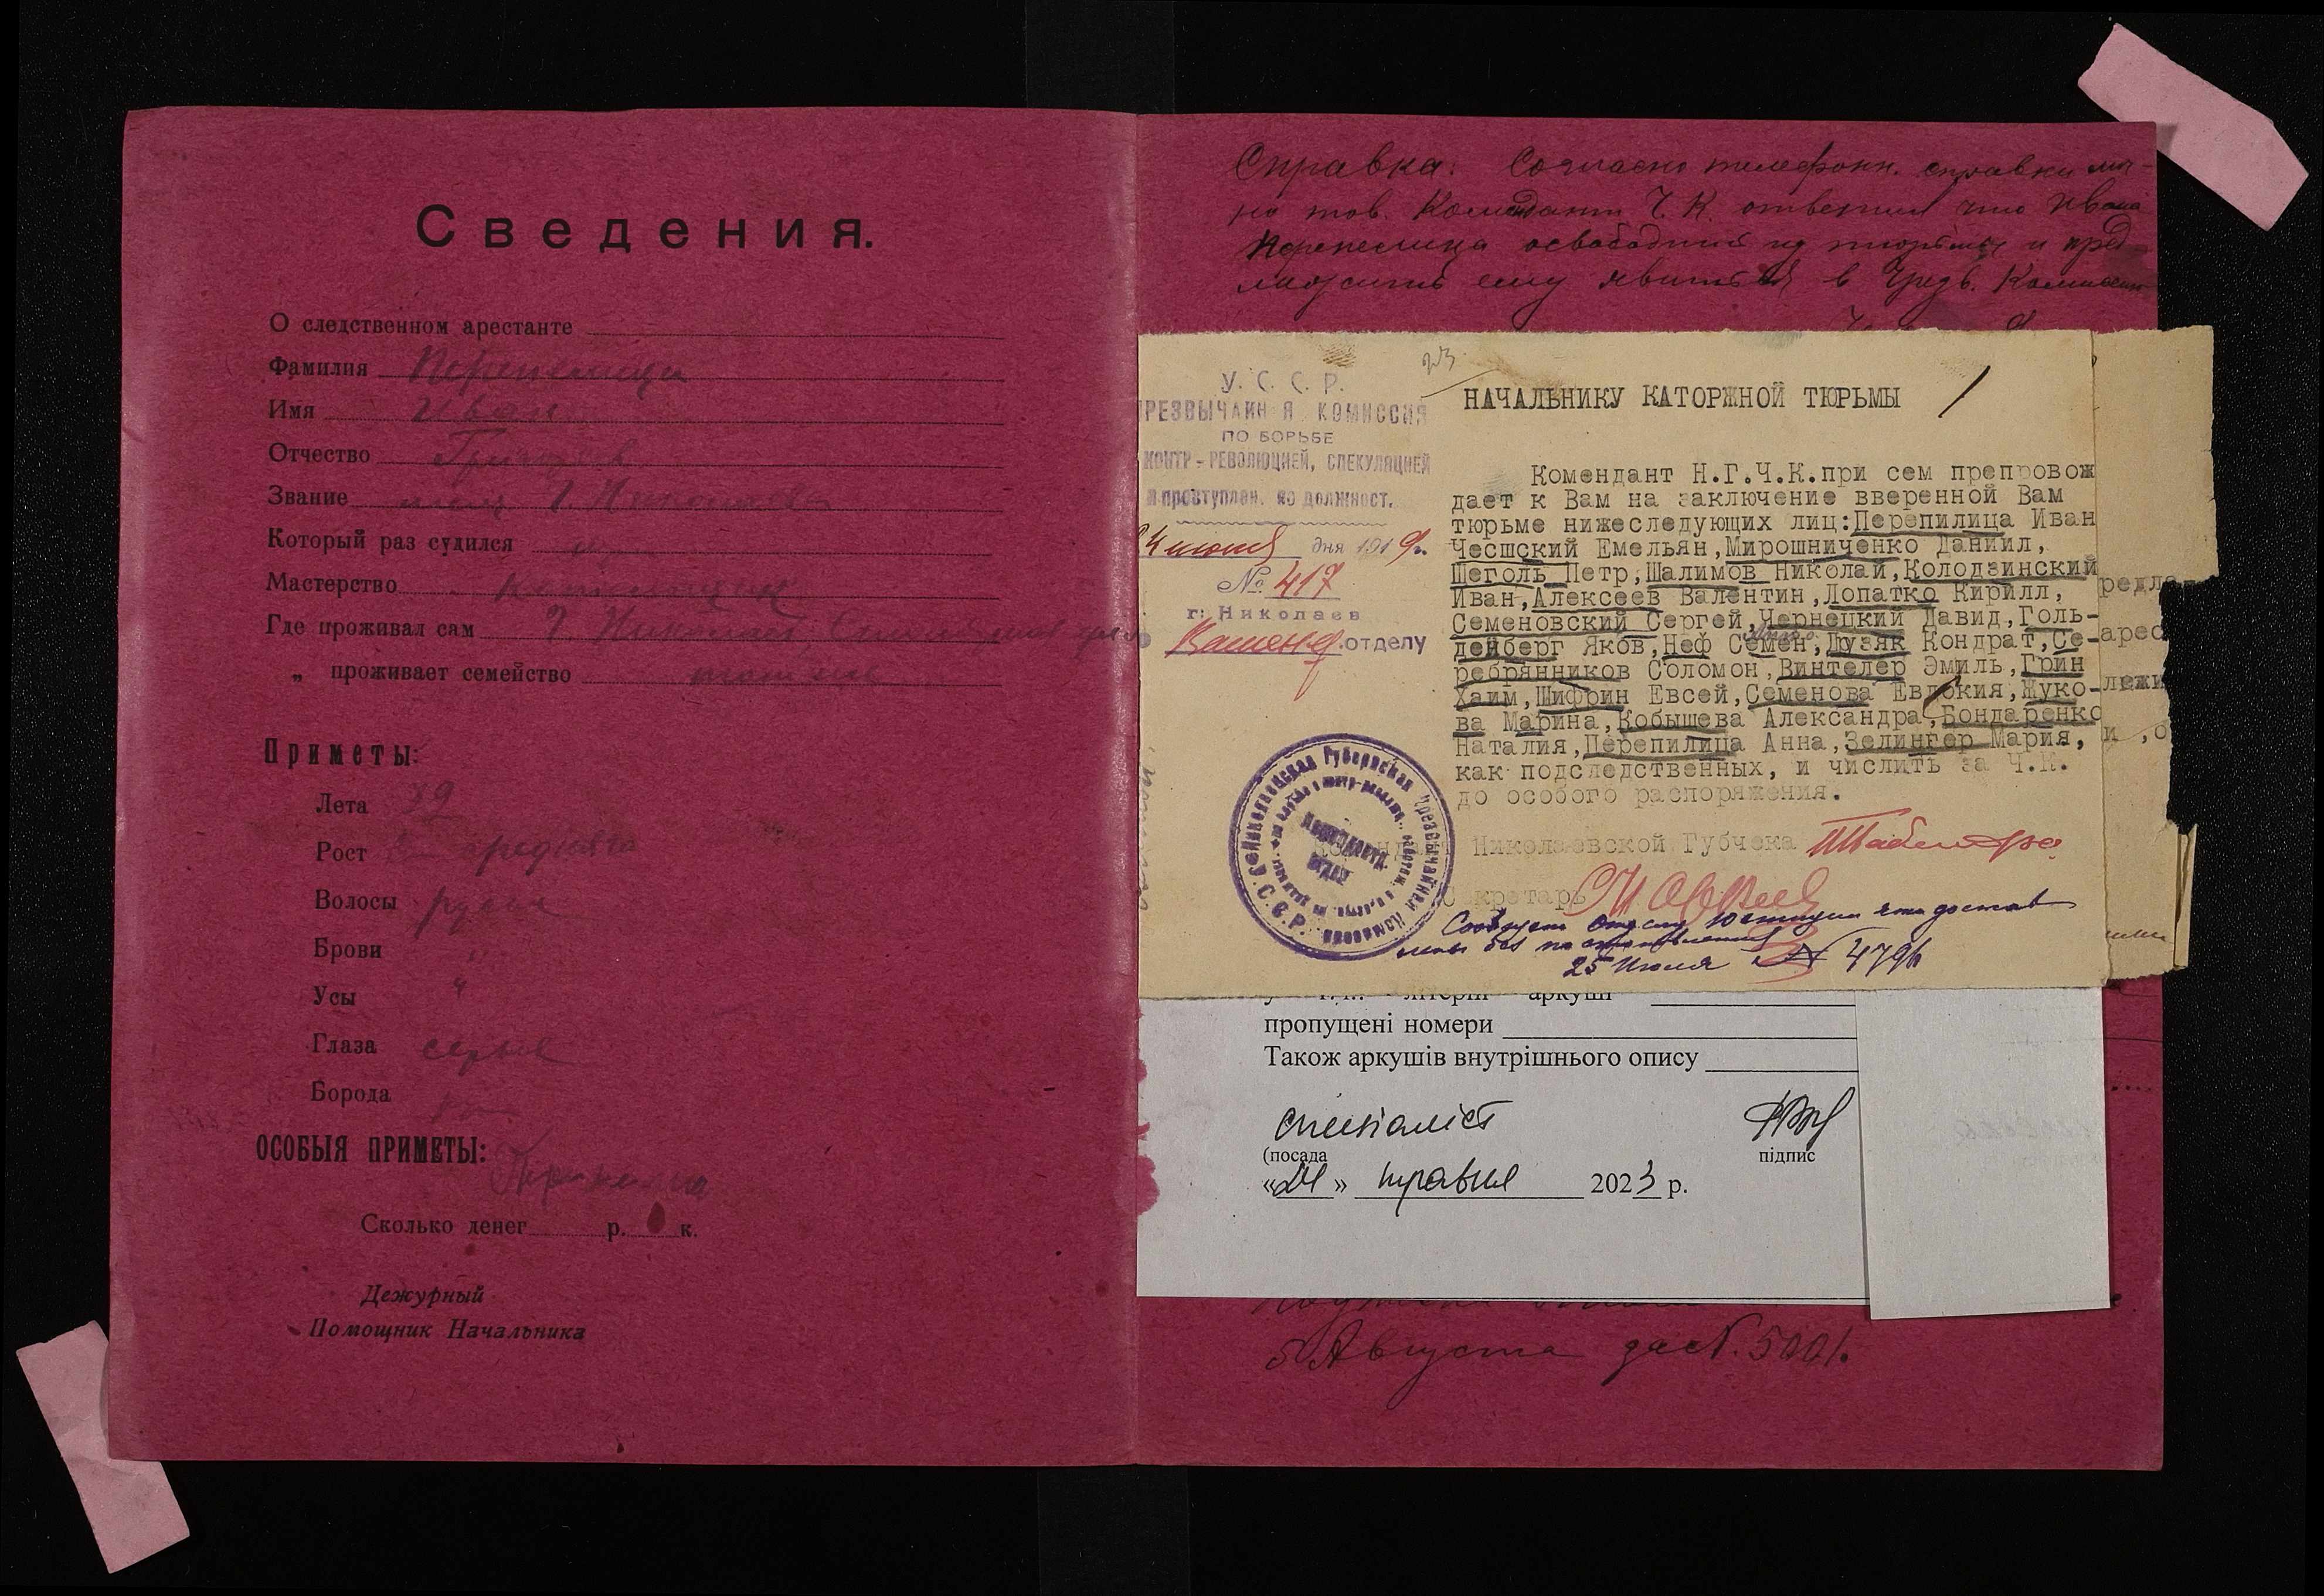 Сведения.
О следственном арестанте
Фамилия Перепелица
Имя Иван
Отчество Григорьев
Звание г. Николаева
Который раз судился
Мастерство котельщик
Где проживал сам г. Николаев,
„ проживает семейство
Приметы:
Лета 39
Рост средняго
Волосы русые
Брови "
Усы "
Глаза серые
Борода
ОСОБЫЯ ПРИМЕТЫ:
Сколько денег р. к.
Дежурный
Помощник Начальника
Справка: Согласно телефонн. справки мч-
но тов. Комендант Ч. К. ответил что Ивана
Перепелица освободить из тюрьмы и пред-
ложить ему явиться в Чрезв. Комиссию
У. С. С. Р.
РЕЗВЫЧАЙН Я КОМИССИЯ
ПО БОРЬБЕ
КОНТР-РЕВОЛЮЦИЕЙ, СПЕКУЛЯЦИЕЙ
и проступлен. по должност.
4 июля дня 1919 г.
№ 417
г. Николаев
отделу
23
НАЧАЛЬНИКУ КАТОРЖНОЙ ТЮРЬМЫ
Комендант Н.Г.Ч.К.при сем препровож
дает к Вам на заключение вверенной Вам
тюрьме нижеследующих лиц:Перепилица Иван
Чесшский Емельян,Мирошниченко Даниил,
Шеголь Петр,Шалимов Николай,Колодзинский
Иван,Алексеев Валентин,Лопатко Кирилл,
Семеновский Сергей,Чернецкий Давид,Голь-
денберг Яков,Неф Семен,Дузяк Кондрат,Се-
ребрянников Соломон,Винтелер Эмиль,Грин
Хаим,Шифрин Евсей,Семенова Евдокия,Жуко-
ва Марина,Кобышева Александра,Бондаренко
Наталия,Перепилица Анна,Зелингер Мария,
как подследственных, и числить за Ч.К.
до особого распоряжения.
Николаевской Губчека
кретарь
Сообщено отделу Юстиции что достав
лены без постановлений
25 Июля № 4796
Николаевская Губернская Чрезвычайная Комиссия
У.С.С.Р.
редла
арес
лежи
и ,о
аркуші
пропущені номери
Також аркушів внутрішнього опису
спеціаліст
(посада
підпис
«24» травня 2023 р.
5 Августа за N. 5001.